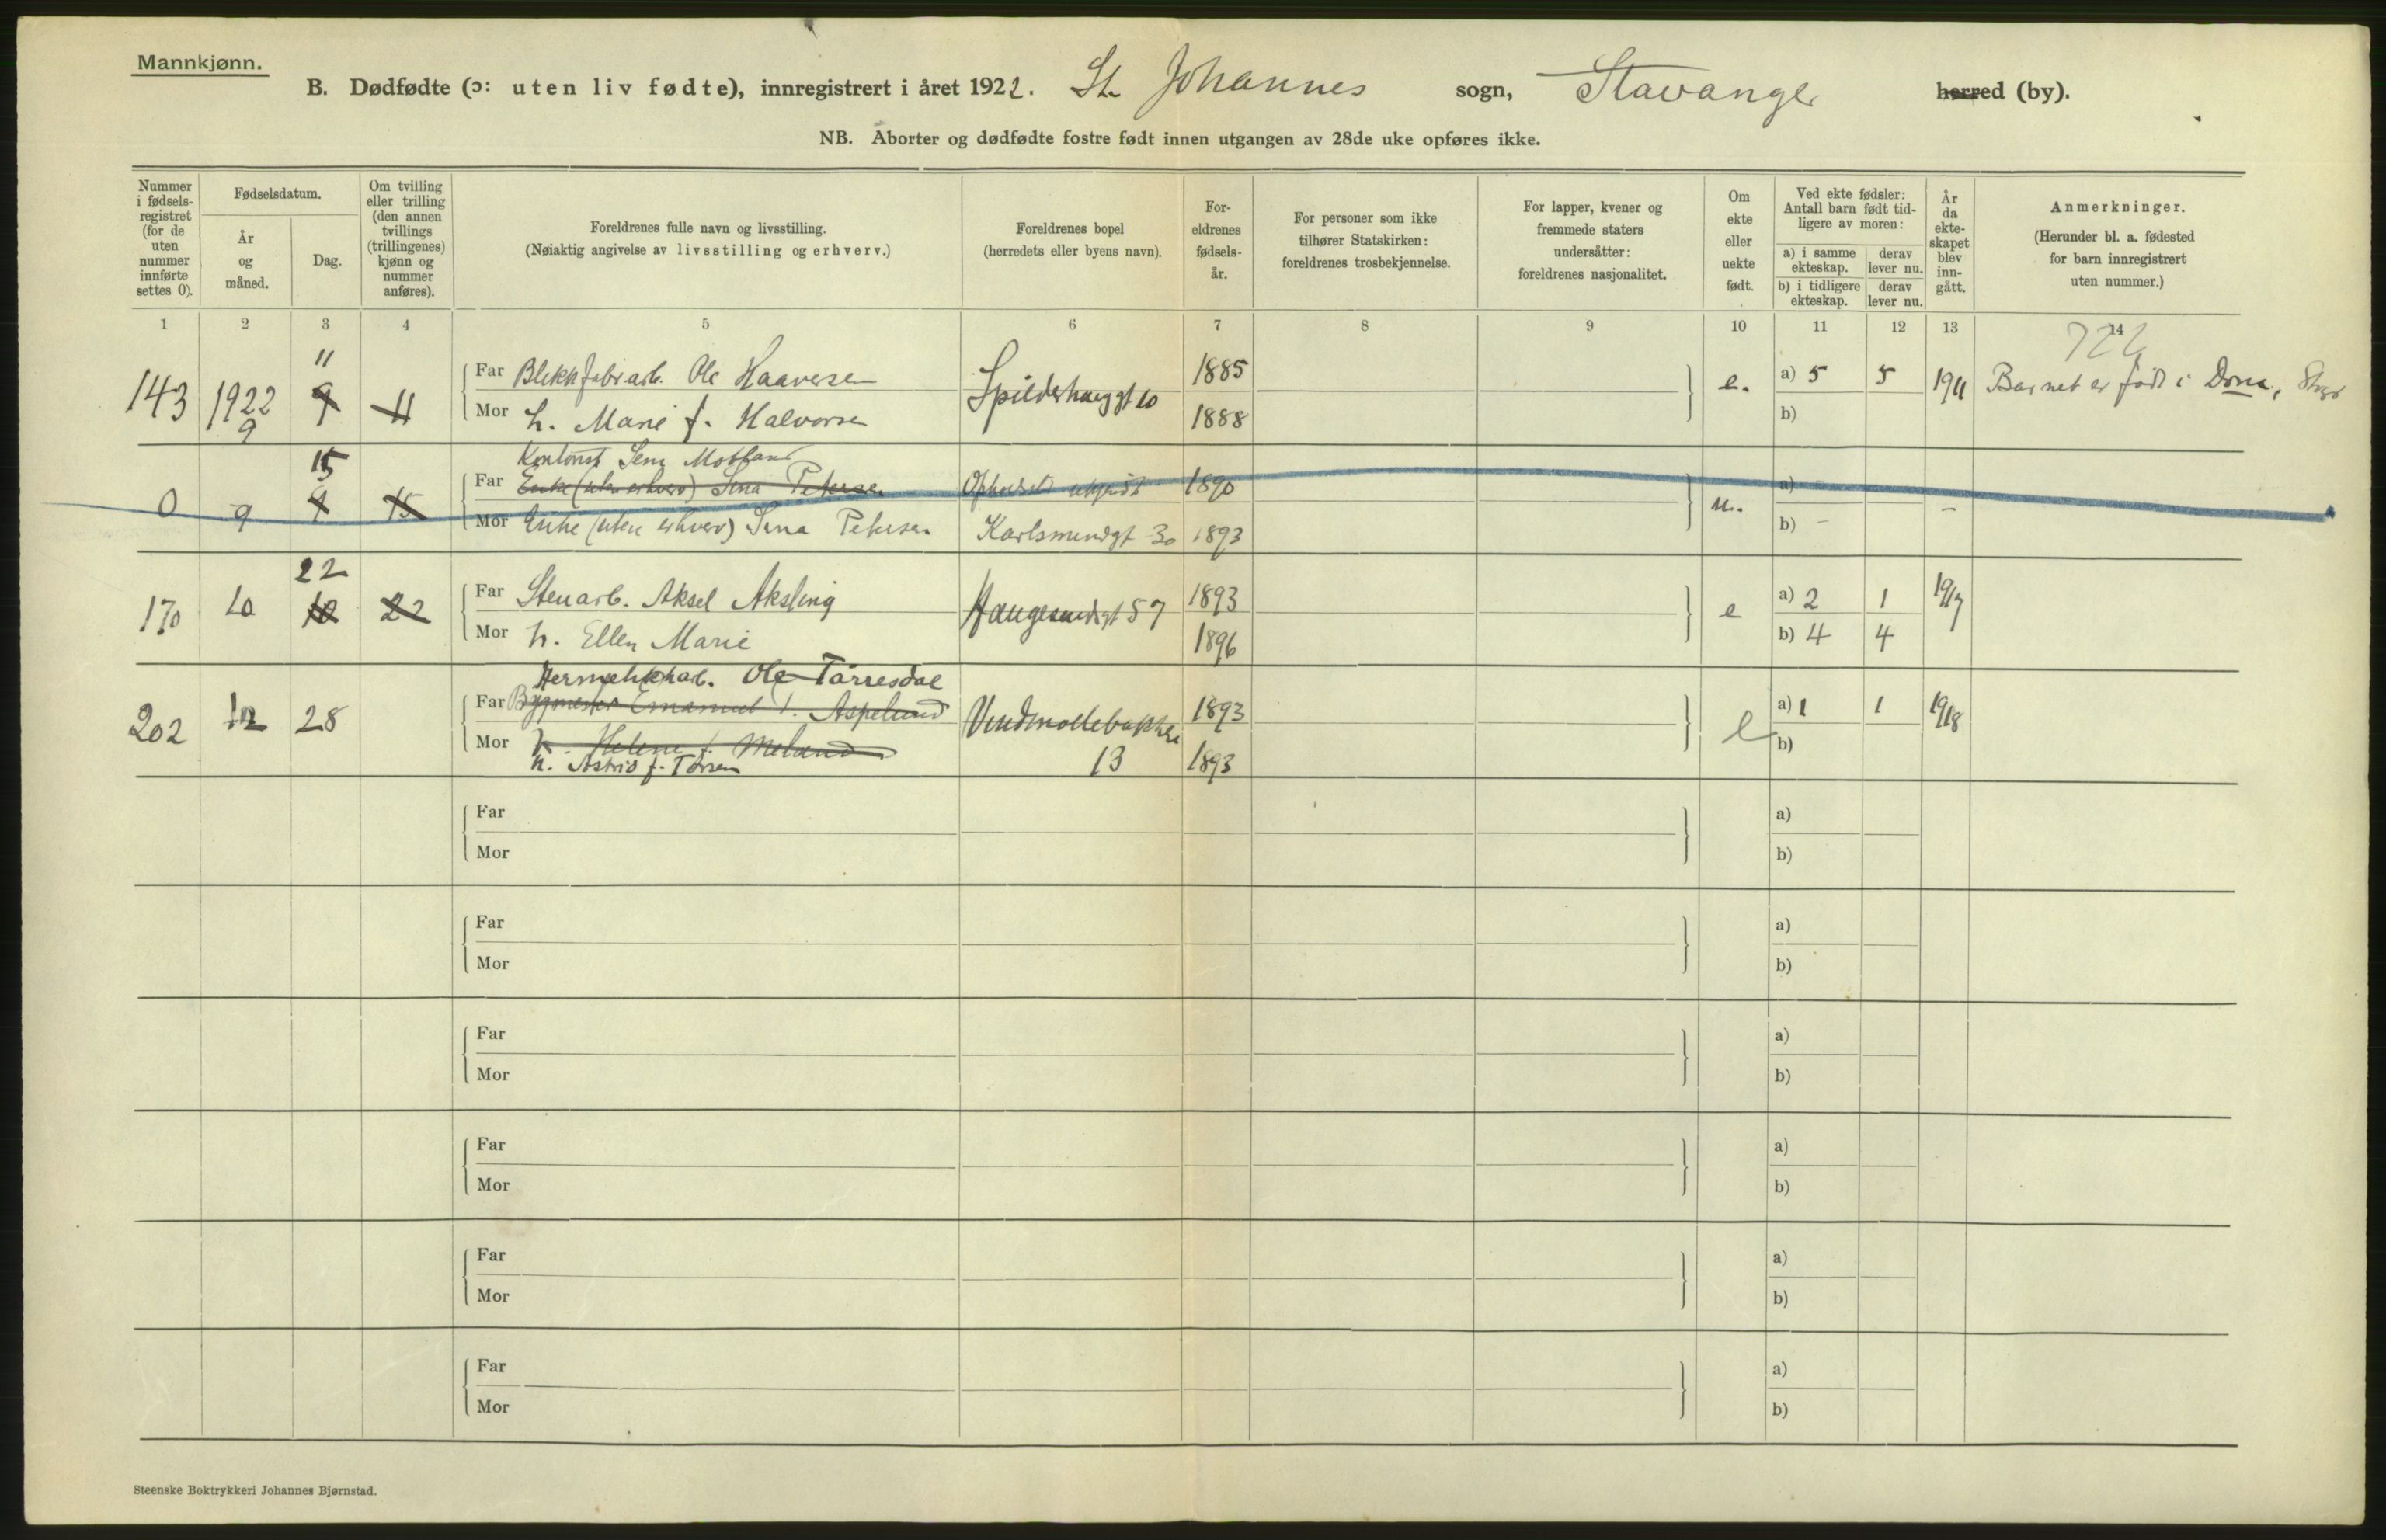 Mannkjønn.
B. Dødfødte (ɔ: uten liv fødte), innregistrert i året 1922. St. Johannes sogn, Stavanger herred (by).
NB. Aborter og dødfødte fostre født innen utgangen av 28de uke opføres ikke.
Nummer i fødsels-registret (for de uten nummer innførte settes 0).
Fødselsdatum.
År og måned.
Dag.
Om tvilling eller trilling (den annen tvillings (trillingenes) kjønn og nummer anføres).
Foreldrenes fulle navn og livsstilling.
(Nøiaktig angivelse av livsstilling og erhverv.)
Foreldrenes bopel
(herredets eller byens navn).
For-eldrenes fødsels-år.
For personer som ikke tilhører Statskirken: foreldrenes trosbekjennelse.
For lapper, kvener og fremmede staters undersåtter: foreldrenes nasjonalitet.
Om ekte eller uekte født.
Ved ekte fødsler: Antall barn født tid-ligere av moren:
a) i samme ekteskap. derav lever nu.
b) i tidligere ekteskap. derav lever nu.
År da ekte-skapet blev inn-gått.
Anmerkninger.
(Herunder bl. a. fødested for barn innregistrert uten nummer.)
1 2 3 4 5 6 7 8 9 10 11 12 13 14
143 1922 9 11 9 11
Far Blikkfabrarb. Ole Haaversen
Mor h. Marie f. Halvorsen
10
1885
1888
e. a) 5 5 1911 Barnet er født i
b)
0 9 15 9 15
Far Enke (uten erhverv) Sina Petersen
Mor Enke (uten erhverv) Sina Petersen
Opholdst. ukjendt 1890
Karlsmindgt 30 1893
u. a) -
b) - -
170 10 22 10 22
Far Stenarb. Aksel Aksling
Mor h. Ellen Marie
Haugesundsgt 57
1893
1896
e a) 2 1 1917
b) 4 4
202 12 28
Hermetikkarb. Ole Tarresdal
Far Bygmester Emanuel T. Aspelund
Mor h. Helene f. Meland
h. Astrid f.
Vindmøllebakken 13
1893
1893
e a) 1 1 1918
b)
Far
Mor
a)
b)
Far
Mor
a)
b)
Far
Mor
a)
b)
Far
Mor
a)
b)
Far
Mor
a)
b)
Far
Mor
a)
b)
Steenske Boktrykkeri Johannes Bjørnstad.